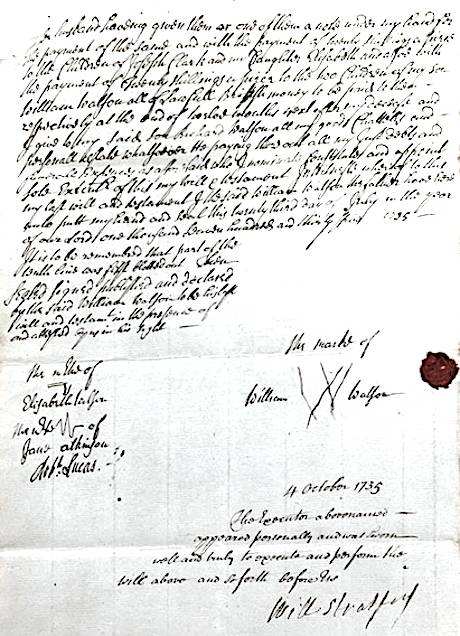 her husband having given them or one of them a note under my hand for
the payment of the same and with the payment of twenty shillings a piece
to the Children of Joseph Clark and my Daughter Elisabeth and also with
the payment of Twenty shillings a piece to the two Children of my son
William Watson all of Lawfull British money to be paid to them
respectively at the end of twelve months next after my decease and
I give to my said son Richard Watson all my goods Chattells and
personall Estate whatsoever He paying thereout all my Just debts and
funerale Expences as aforesaid who I nominate Constitute and appoint
sole Executor of this my will & testament In witness whereof to this
my last will and testament I the said William Watson the father have here
unto putt my hand and seal this twenty third day of July in the year
of our Lord one thousand seven hundred and thirty five 1735
It is to be remembred that part of the
tenth line was first blotted out then
Sealed signed published and declared
by the said William Watson to be his last
will and testament in the presence of
and attested by us in his sight
The marke of
William Watson
The marke of
Elisabeth
The marke of
Jane Atkinson
Lucas
4 October 1735
The Executor abovenamed
appeared personally and was sworn
well and truly to execute and perform the
will above and so forth before Us
Will Stratford